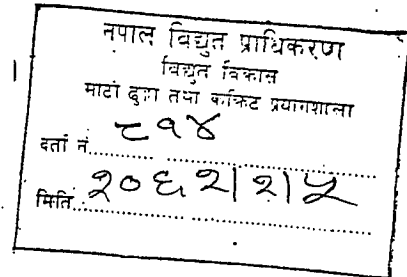 नेपाल विद्युत प्राधिकरण
विद्युत विकास
माटो ढुङ्गा तथा कंक्रिट प्रयोगशाला
दर्ता नं. ८१४
मिति: २०६२।२।५